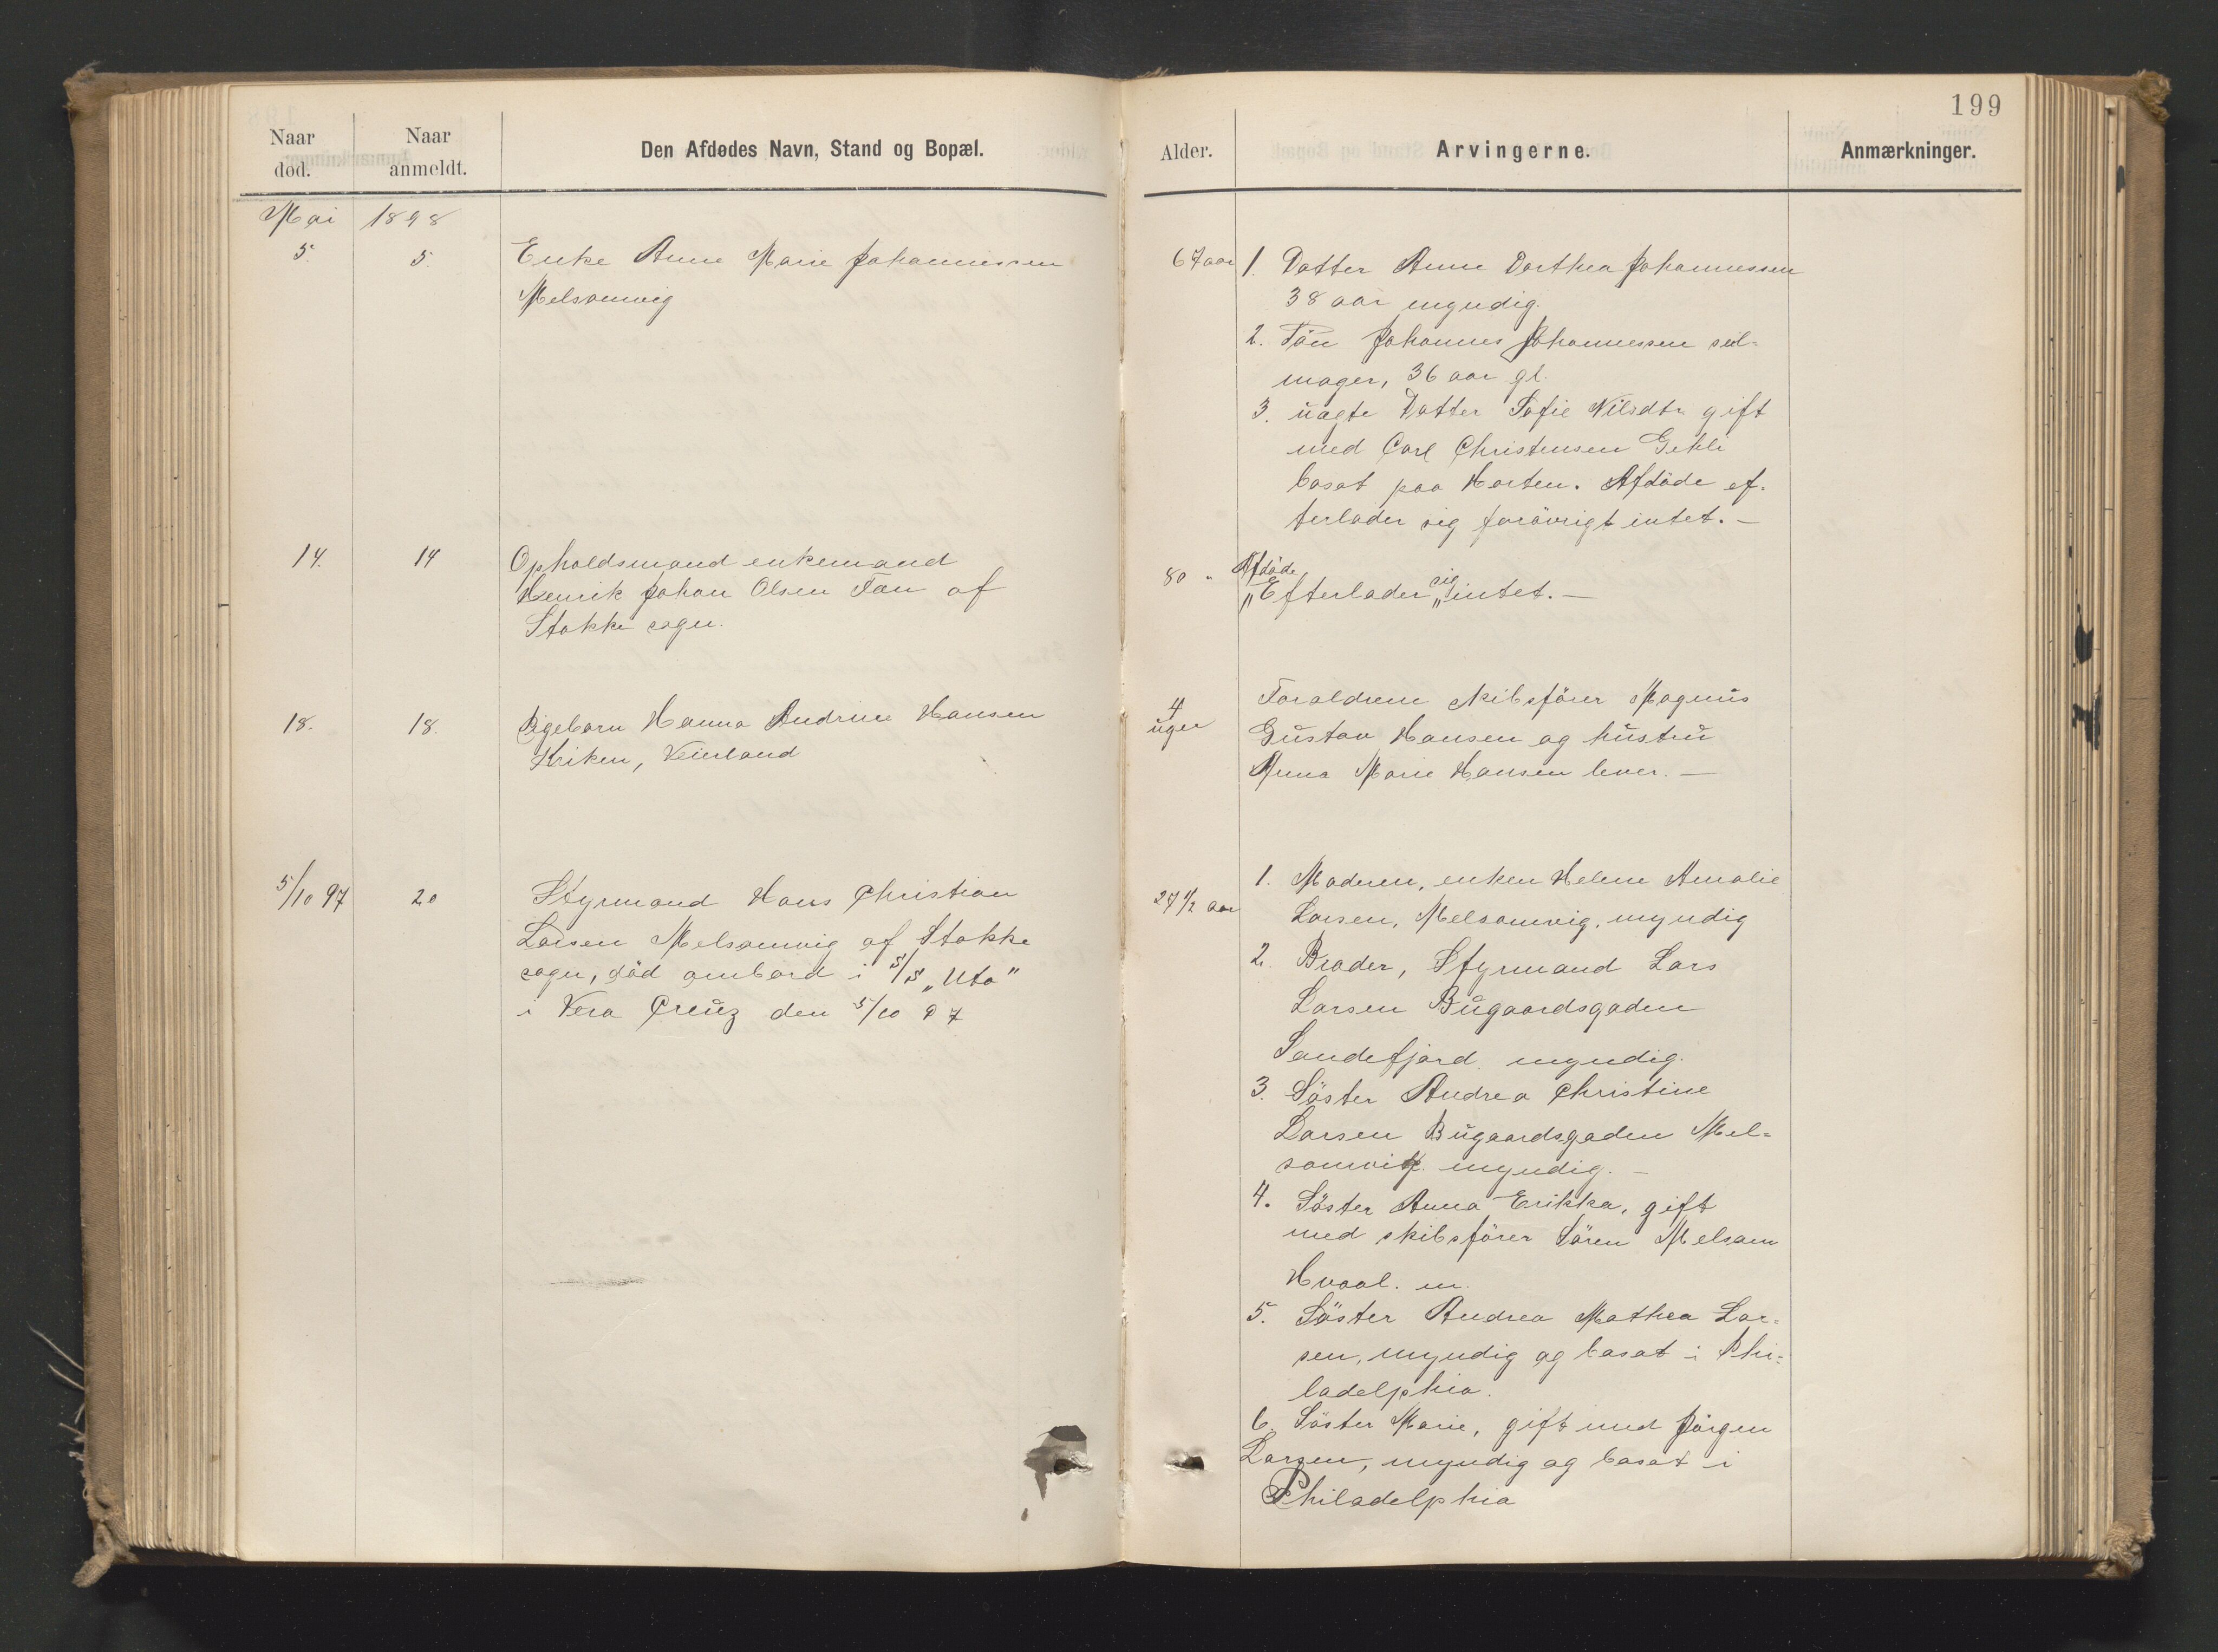 199
Naar død.
Naar anmeldt.
Den Afdødes Navn, Stand og Bopæl.
Alder.
Arvingerne.
Anmærkninger.
Mai 1898
5. 5. Enke Anne Marie Johannessen
Melsomvig
67 aar
1. Datter Anne Dorthea Johannessen
38 aar myndig.
2. Sön Johannes Johannessen seil-
mager, 36 aar gl.
3. uægte Datter Sofie Nilsdtr gift
med Carl Christensen Gekli
bosat paa Horten. Afdöde ef-
terlader sig forövrigt intet. —
14. 14 Opholdsmand enkemand
Henrik Johan Olsen Fån af
Stokke sogn.
80 "
Afdöde
„Efterlader „sig intet. —
18. 18. Pigebarn Hanna Andrine Hansen
Kriken, Veierland
4
uger
Foraldrene skibsförer Magnus
Gustav Hansen og hustru
Anna Marie Hansen lever. —
5/10 97 20 Styrmand Hans Christian
Larsen Melsomvig af Stokke
sogn, död ombord i S/S „Uto"
i Vera Creuz den 5/10 97
27 1/2 aar
1. Moderen, enken Helene Amalie
Larsen, Melsomvig, myndig
2. Broder, Styrmand Lars
Larsen Bugaardsgaden
Sandefjord. myndig.
3. Söster Andrea Christine
Larsen Bugaardsgaden Mel-
somvig. myndig. —
4. Söster Anna Erikka, gift
med skibsförer Sören Melsom
Hvaal. m.
5. Söster Andrea Mathea Lar-
sen, myndig og bosat i Phi-
ladelphia.
6. Söster Marie, gift med Jörgen
Larsen, myndig og bosat i
Philadelphia